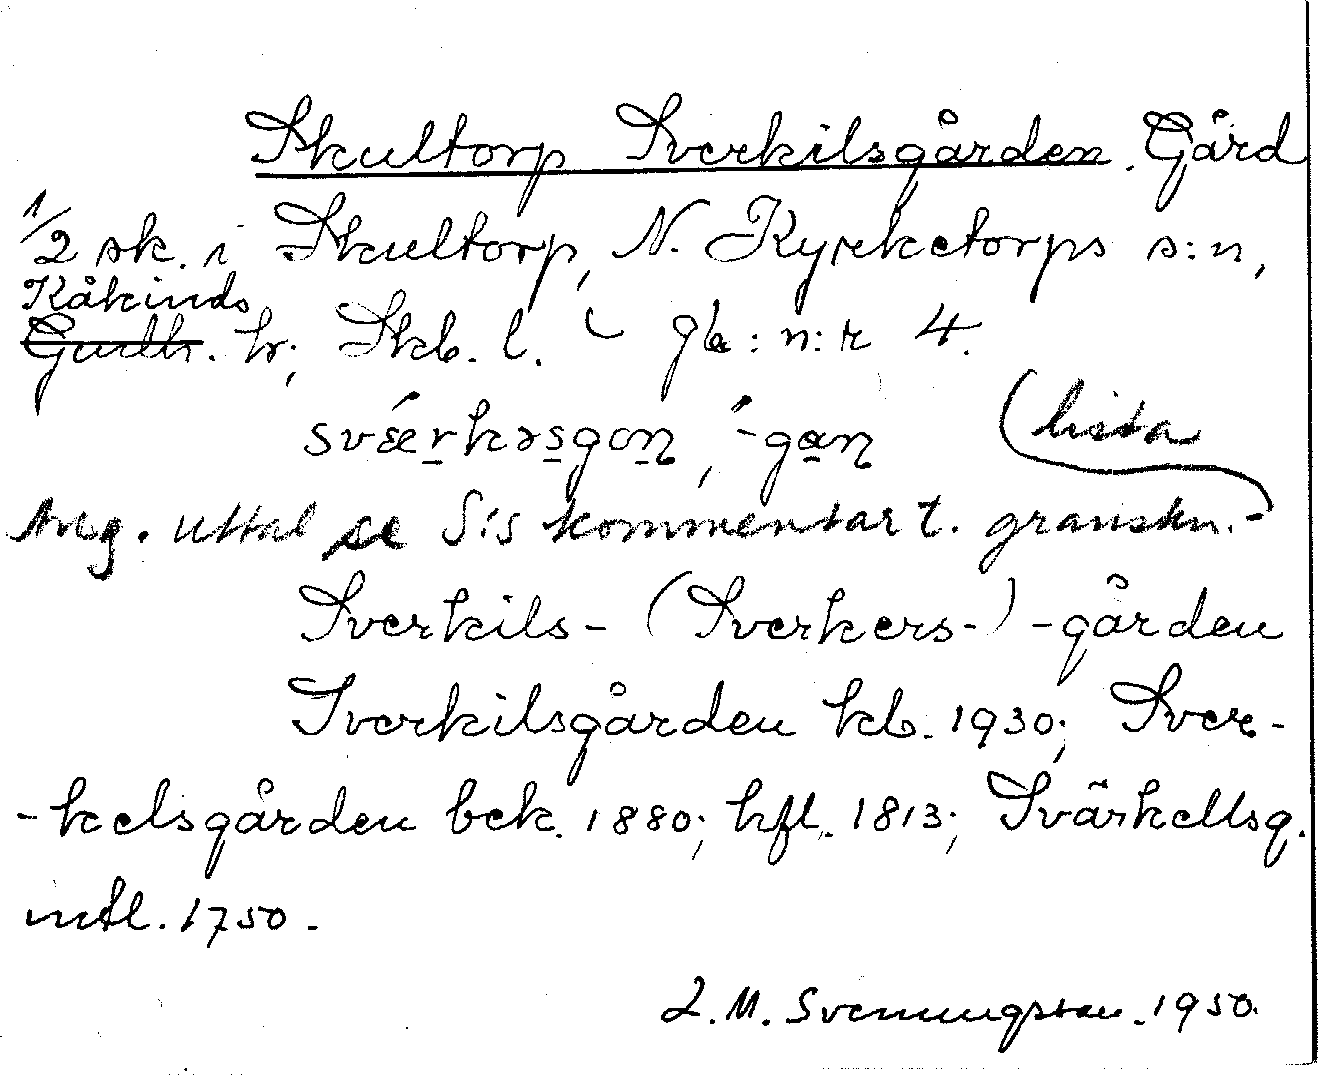 Skultorp Sverkilsgården. Gård
1/2 sk. i Skultorp, N. Kyrketorps s:n,
Kåkinds
Gudh. hr; Skb. l. gb: n:r 4.
svæ̀rkəsgɑn, -gɑn
(lista
Ang. uttal se S:s kommentar t. granskn.-
Sverkils- (Sverkers-) -gården
Sverkilsgården kb. 1930; Sver-
-kelsgården bek. 1880; hfl. 1813; Svärkellsg.
mtl. 1750.
L. M. Svenungsson. 1950.